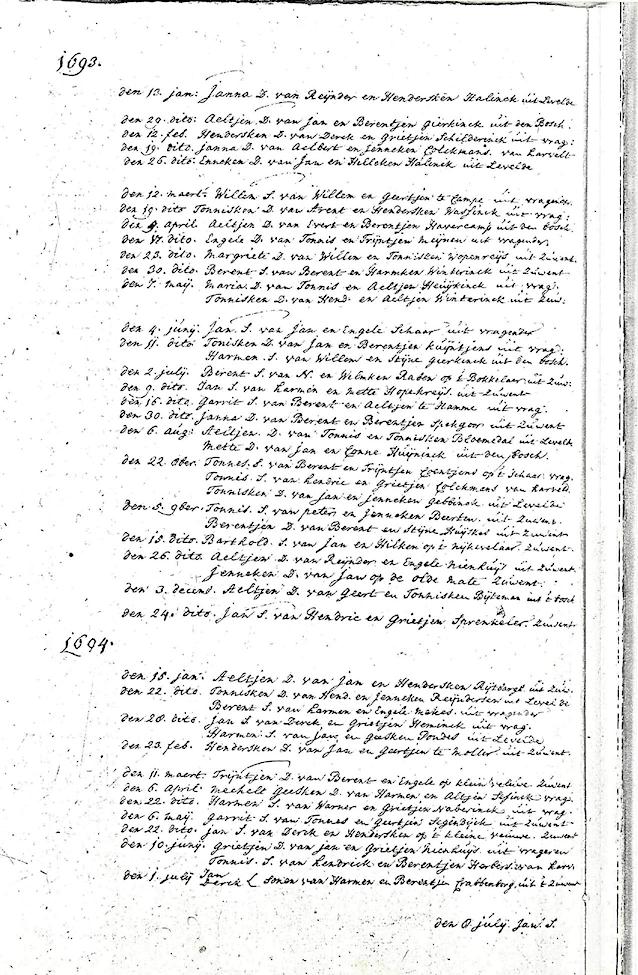 1693.
den 13. jan: Janna D. van Reijnder en Hendersken Halinck uit Levelde
den 29. dito: Aeltjen D. van Jan en Berentjen Gierkinck uit den Bosch.
den 12. feb. Hendersken D. van Derck en Grietjen Schilderinck uit vrag:
den 19. dito. Janna D. van Aelbert en Jenneken Colckmans van harvelt
den 26. dito: Enneken D. van Jan en Hilleken Halinck uit Levelde
den 12. maert. Willem S. van Willem en Geertjen te Campe uit vragender
den 19. dito Tonnisken D. van Arent en Hendersken Wassinck uit vrag:
den 9. april Aeltjen D. van Evert en Berentjen Havercamp uit den bosch.
den 17. dito. Engele D. van Tonnis en Trijntjen Meijnen uit vragender
den 23. dito. Margriete D. van Willem en Tonnisken Wopenreijs uit Zuwent.
den 30. dito. Berent S. van Berent en Harmken Winterinck uit Zuwent
den 7. maij. Maria D. van Tonnis en Aeltjen Heuijkinck uit vrag:
Tonnisken D. van Hend. en Aeltjen Winterinck uit Zuw:
den 4. junij. Jan. S. van Jan en Engele Schaar uit vragender
den 11. dito Tonisken D. van Jan en Berentjen kuijntjens uit vrag:
Harmen. S. van Willem en Stijne Gierkinck uit den bosch.
den 2. julij. Berent S. van N. en Welmken Raben op t Bokkelaer uit Zuw:
den 9. dito. Jan S. van harmen en Mette Hopekreijl uit Zuwent
den 16. dito. Garrit S. van Berent en Aeltjen te Hamme uit vrag:
den 30. dito. Janna D. van Berent en Berentjen Spekgoor uit Zuwent
den 6. aug: Aeltjen. D. van Tonnis en Tonnisken Bloemedal uit Levelde
Mette D. van Jan en Conne Huijninck uit den bosch.
den 22. 8ber. Tonnes. S. van Berent en Trijntjen Coentjens op t Schaar vrag.
Tonnis. S. van hendric en Grietjen Colckmans van harvelt
Tonnisken D. van Jan en Jenneken Gebbinck uit Levelde
den 5. 9ber. Tonnis. S. van peter en Jenneken Beerten. uit Zuwent.
Berentjen D. van Berent en Stijne Huijskes uit Zuwent
den 15. dito. Barthold. S. van Jan en Hilken op t nijkevelaar. Zuwent.
den 26. dito. Aeltjen D. van Reijnder en Engele nienhuijs uit Zuwent
Jenneken D. van Jan op de olde mate Zuwent.
den 3. decemb. Aeltjen D. van Geert en Tonnisken Bijleman uit t bosch
den 24. dito. Jan S. van Hendric en Grietjen Sprenkeler. Zuwent
1694.
den 15. jan. Aeltjen D. van Jan en Hendersken Rijtbergh uit Zuw.
den 22. dito Tonnisken D. van Hend. en Jenneken Reijndersen uit Levelde
Berent S. van harmen en Engele makes uit vragender
den 28. dito. Jan S. van Derck en Grietjen Heminck uit vrag.
Harmen. S. van Jan en Geesken Tondes uit Levelde
den 23. feb. Hendersken D. van Jan en Geertjen te Moller uit Zuwent.
den 11. maert: Trijntjen D. van Berent en Engele op klein veluwe Zuwent
den 6. april mechele Geesken D. van Harmen en Altjen Sisinck vrag.
den 22. dito. Harmen S. van Warner en Grietjen Naberinck uit vrag.
den 6. maij. Garrit S. van Tonnes en Geertjen Segendijck uit Zuwent.
den 22. dito. Jan S. van Derck en Hendersken op 't kleine veluwe. Zuwent
den 10. junij. Grietjen D. van Jan en Grietjen Nienhuijs uit vrageren
Tonnis. S. van hendrick en Berentjen Herbers: van harv.
den 1. julij Jan
Derck sonen van Harmen en Berentjen Crabbenborg, uit 't Zuwent
den 8 julij. Jan. S.